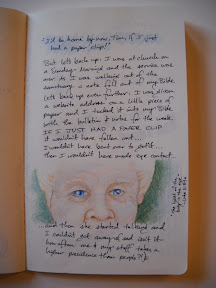 I'd be home by now, Tom, if I just
had a paper clip!!
But let's back up: I was at church on
a Sunday Morning and the service was
over. As I was walking out of the
sanctuary a note fell out of my Bible.
Let's back even further: I was given
a website address on a little piece of
paper and I tucked it into my Bible
with the bulletin & notes for the week.
IF I JUST HAD A PAPER CLIP
it wouldn't have fallen out...
I wouldn't have bent over to get it...
Then I wouldn't have made eye contact...
...and then she started talking and
I couldn't get away
how often are & my stuff takes a
higher precedence than people?!)